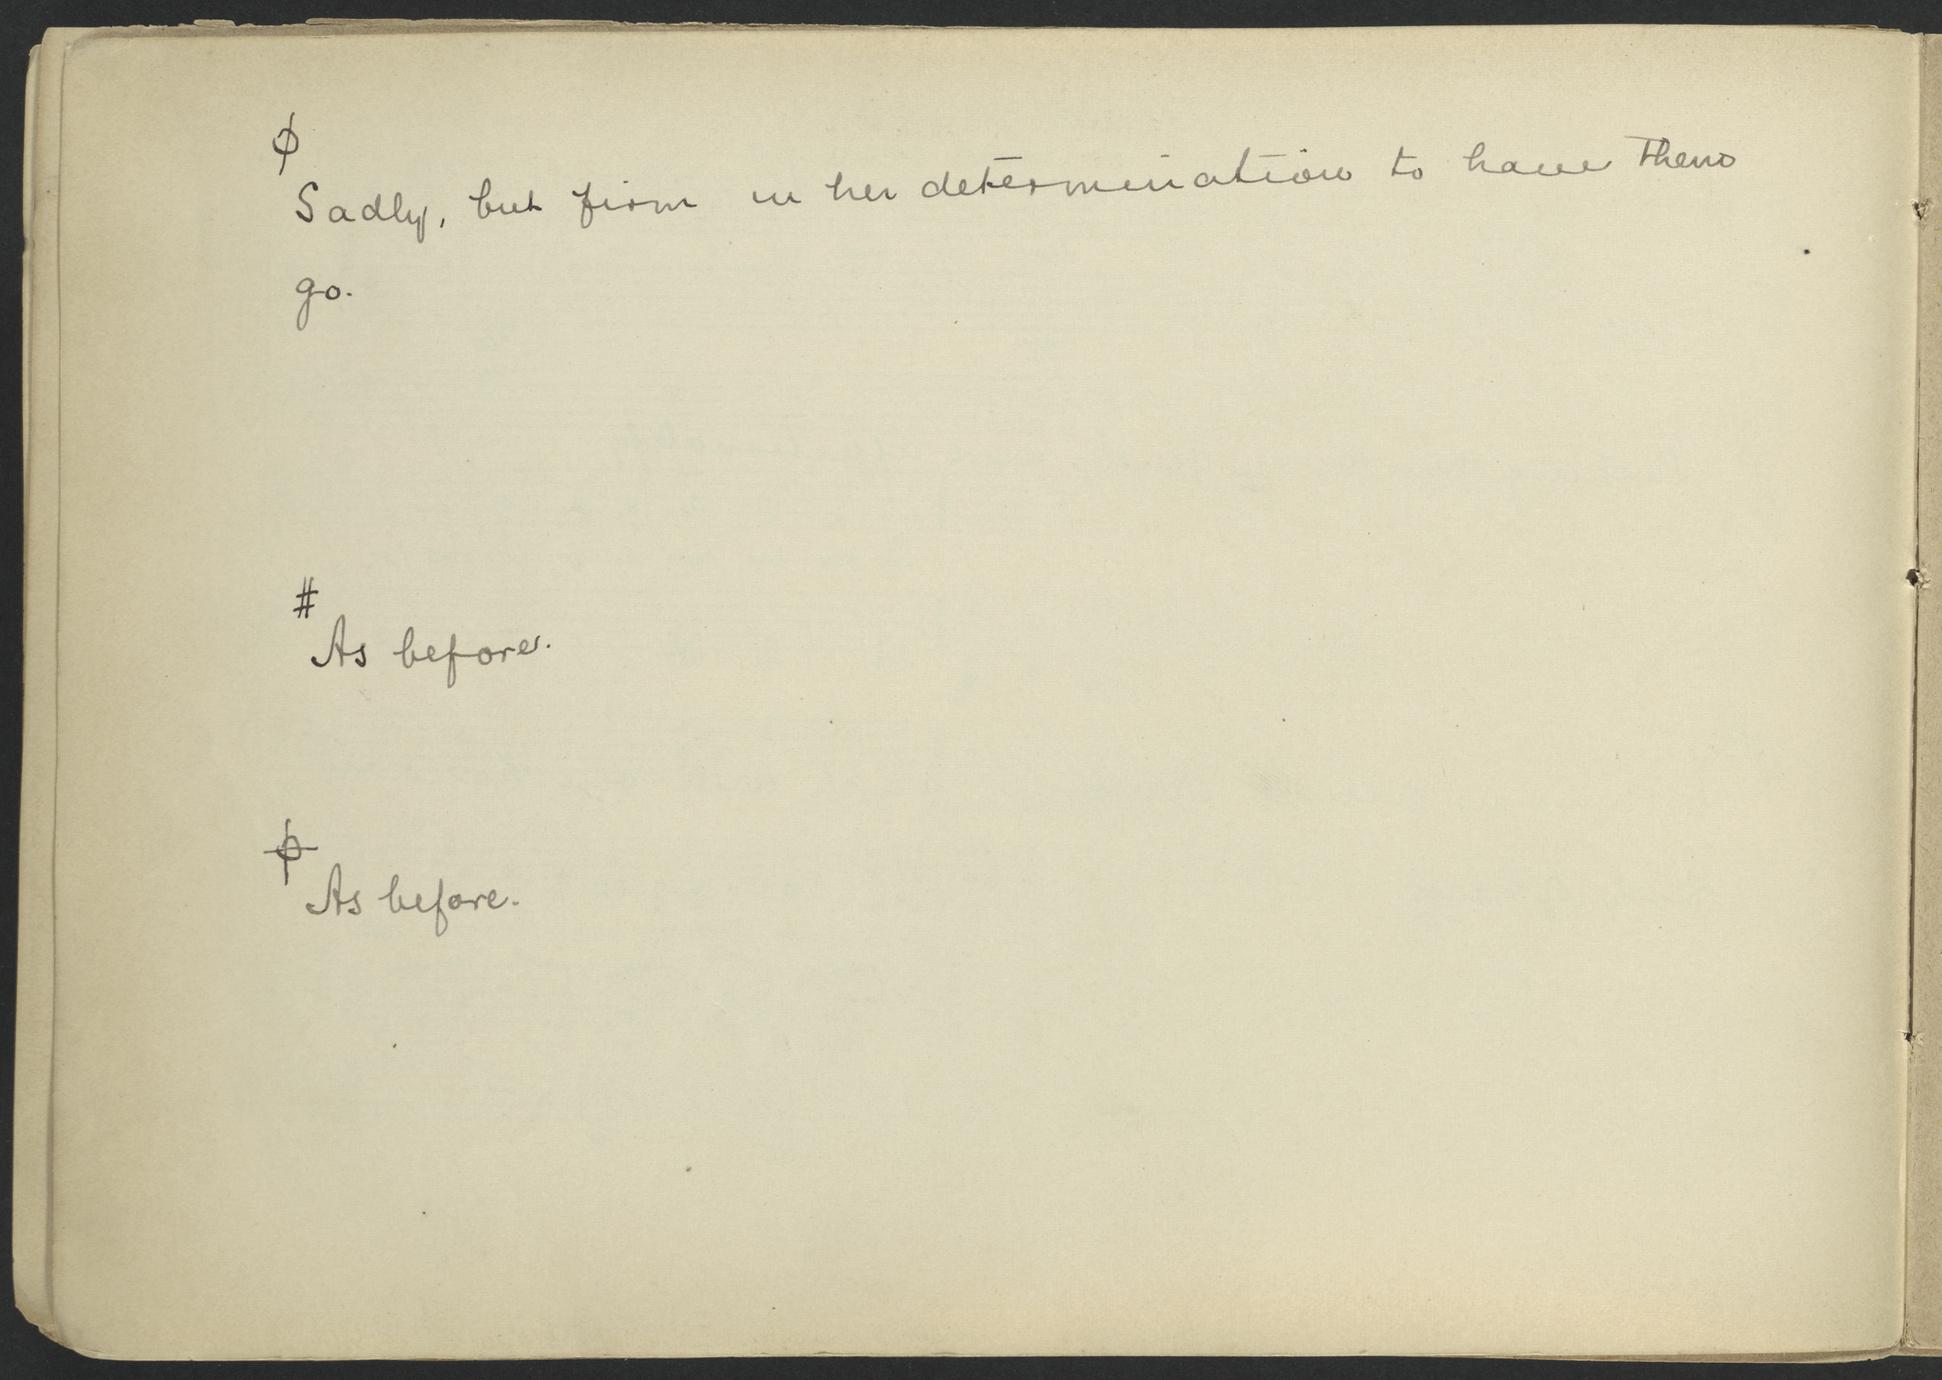 φ
Sadly, but firm in her determination to have them
go.
#
As before.
φ
As before.